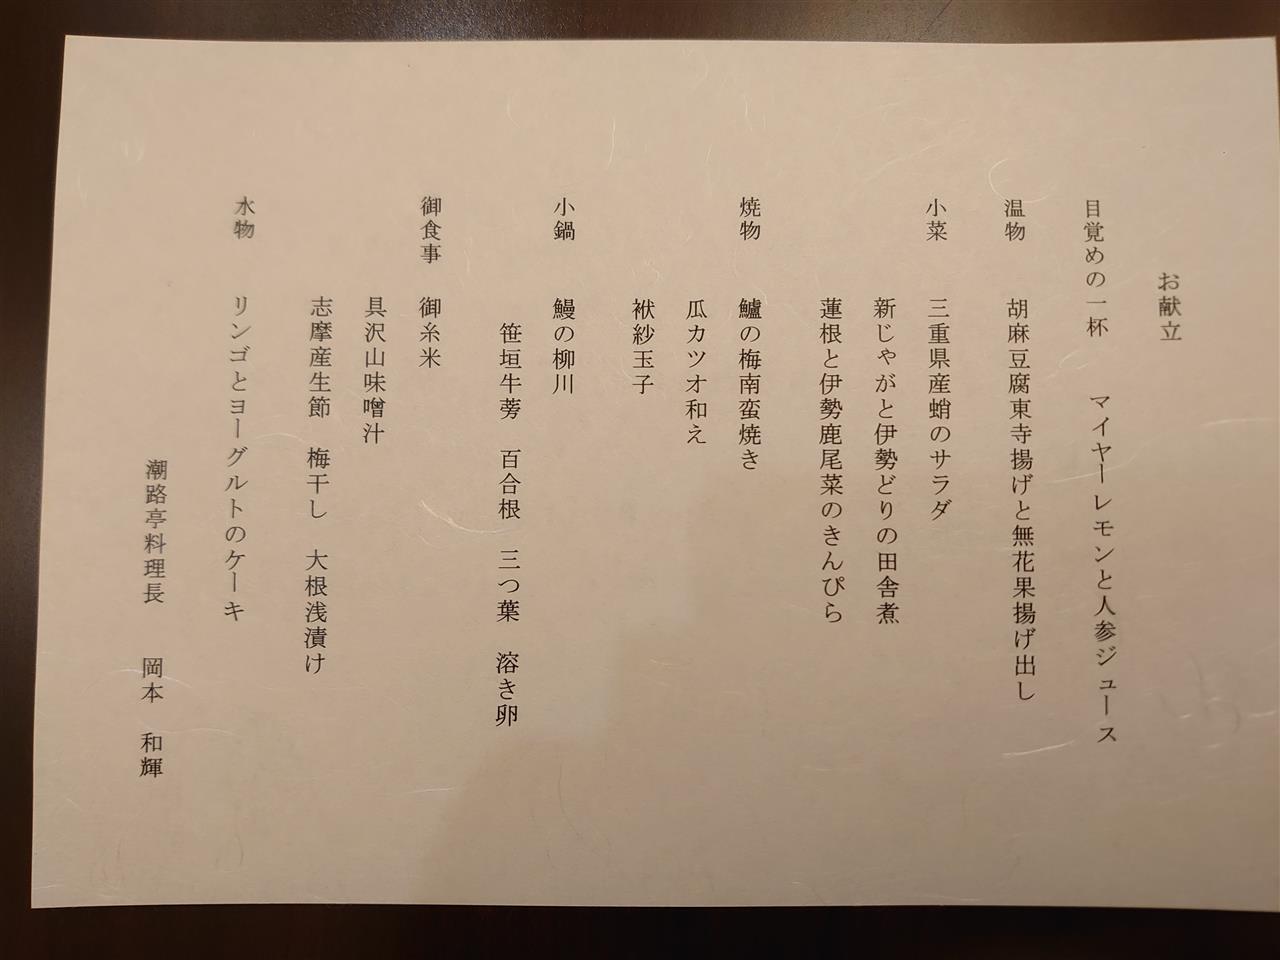 お献立
目覚めの一杯　マイヤーレモンと人参ジュース
温物　胡麻豆腐東寺揚げと無花果揚げ出し
小菜　三重県産蛸のサラダ
新じゃがと伊勢どりの田舎煮
蓮根と伊勢鹿尾菜のきんぴら
焼物　鱸の梅南蛮焼き
瓜カツオ和え
袱紗玉子
小鍋　鰻の柳川
笹垣牛蒡　百合根　三つ葉　溶き卵
御食事　御糸米
具沢山味噌汁
志摩産生節　梅干し　大根浅漬け
水物　リンゴとヨーグルトのケーキ
潮路亭料理長　岡本　和輝